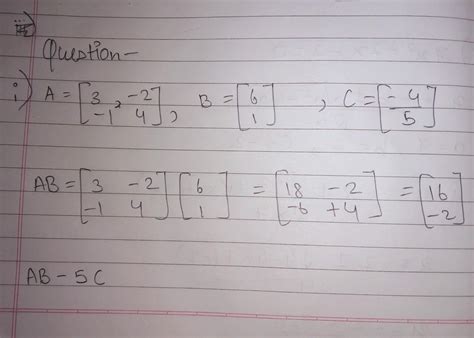 Question-
i) A = [3, -2
-1 4], B = [6
1] , C = [-4
5]
AB = [3 -2
-1 4] [6
1] = [18 -2
-6 +4] = [16
-2]
AB - 5C